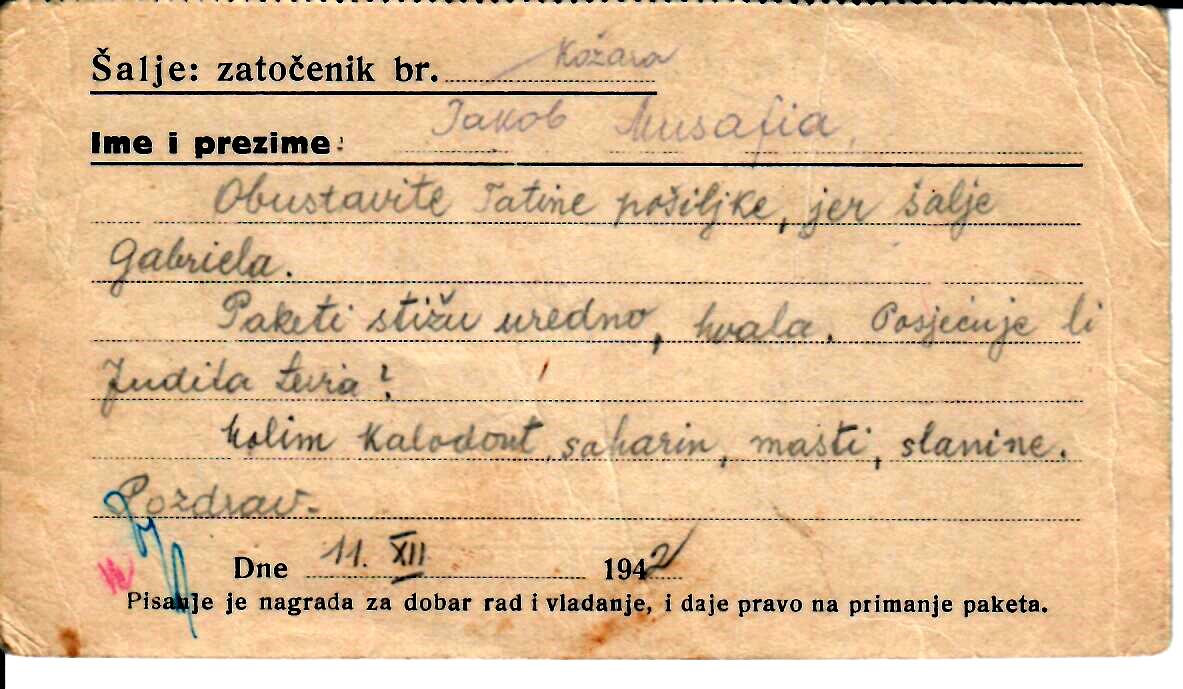 Šalje: zatočenik br. Kožara
Ime i prezime: Jakob Musafia,
Obustavite Tatine pošiljke, jer šalje
Gabriela.
Paketi stižu uredno, hvala. Posjećuje li
Judita
Molim Kalodont, saharin, masti, slanine.
Pozdrav-
Dne 11. XII 1942
Pisanje je nagrada za dobar rad i vladanje, i daje pravo na primanje paketa.